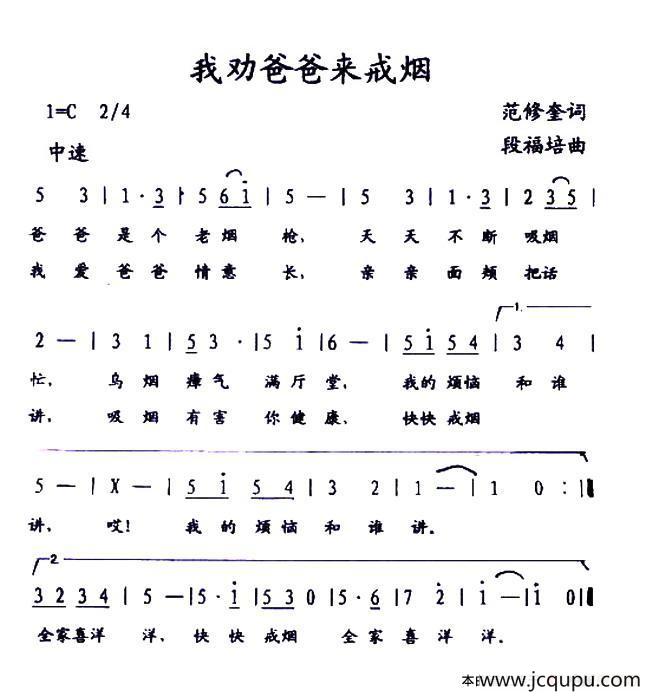 我劝爸爸来戒烟
1=C 2/4
范修奎词
中速
段福培曲
5 3 | 1 · 3 | 5 6 i | 5 — | 5 3 | 1 · 3 | 2 3 5 |
爸 爸 是 个 老 烟 枪， 天 天 不 断 吸烟
我 爱 爸 爸 情 意 长， 亲 亲 面 颊 把话
1.
2 — | 3 1 | 5 3 · | 5 i | 6 — | 5 i 5 4 | 3 4 |
忙， 乌 烟 瘴 气 满 厅 堂， 我的 烦恼 和 谁
讲， 吸 烟 有 害 你 健 康， 快快 戒烟
5 — | X — | 5 i 5 4 | 3 2 | 1 — | 1 0 :‖
讲， 哎！ 我 的 烦 恼 和 谁 讲。
2.
3 2 3 4 | 5 — | 5 · i | 5 3 0 | 5 · 6 | 7 2 | i — | i 0 ‖
全家喜洋 洋， 快 快 戒烟 全 家 喜 洋 洋。
www.jcqupu.com